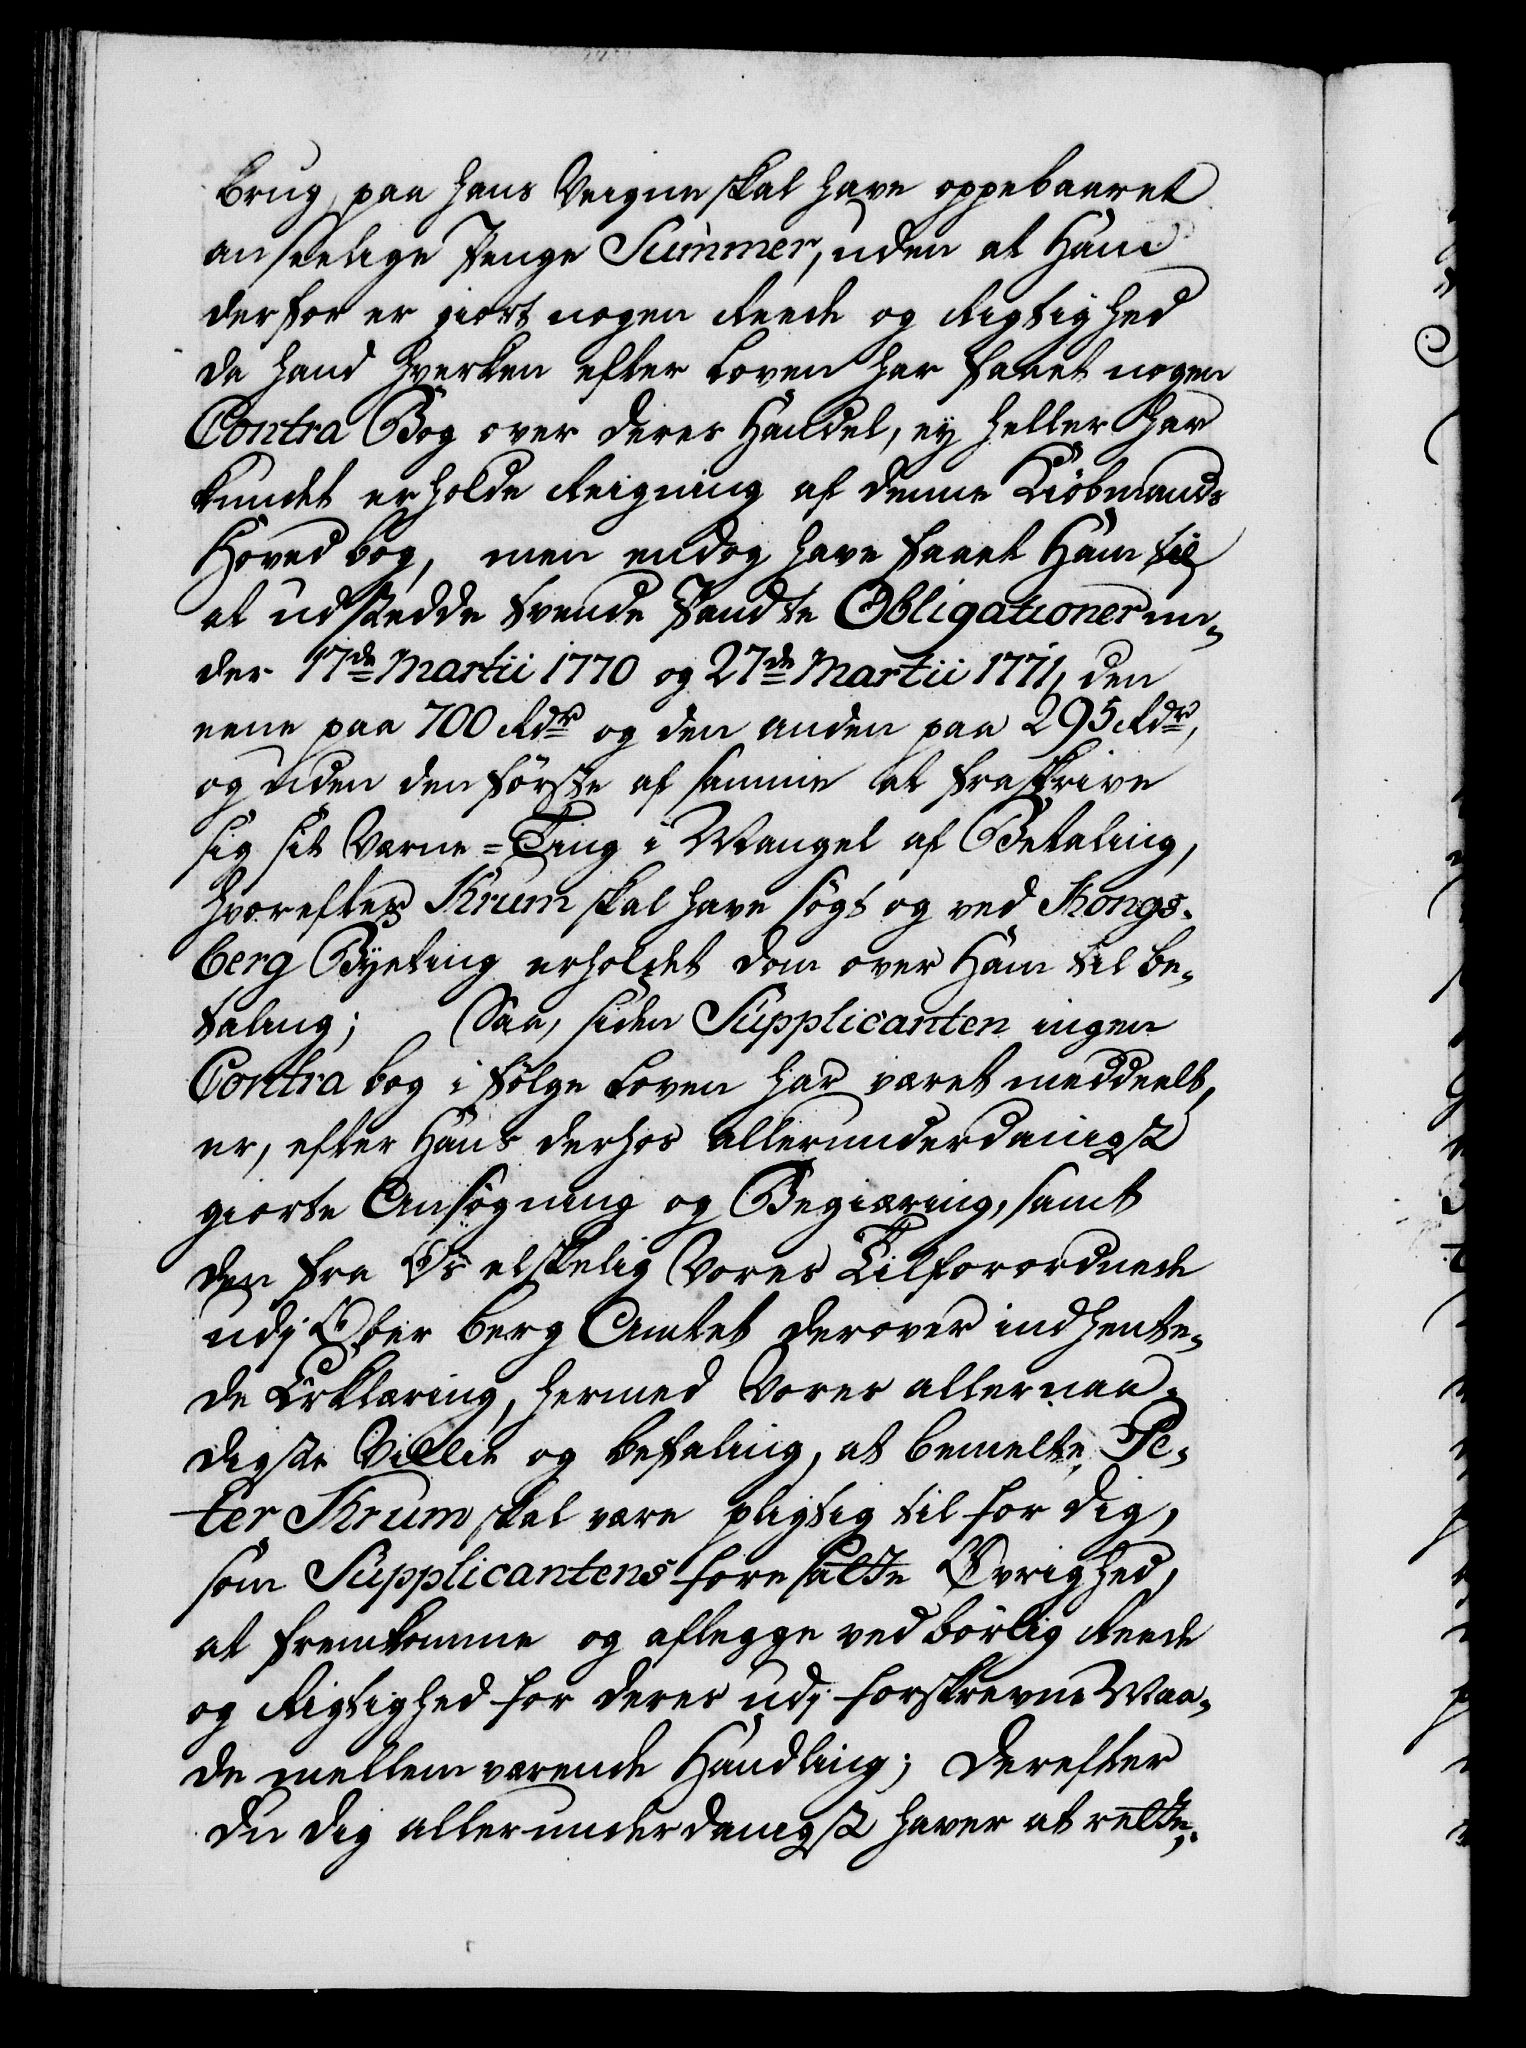 brug, paa hans Veigne skal have oppebaaret
anseelige Penge Summer, uden at Ham
derfor er giort nogen Reede og Rigtighed
da hand hverken efter Loven har faaet nogen
Contra Bog over deres Handel, ey heller har
kundet erholde Reigning af denne Kiöbmands
Hoved bog, men endog have faaet Ham til
at udstedde tvende Pandte Obligationer un„
der 17de Martii 1770 og 27de Martii 1771, den
eene paa 700 Rdr og den anden paa 295 Rdr,
og uden den første af samme at fraskrive
sig sit Værne=Ting i Mangel af Betaling,
hvorefter Krum skal have søgt og ved Kongs„
berg Byeting erholdet dom over Ham til be„
taling; Saa, siden Supplicanten ingen
Contra bog i følge Loven har været meddeelt,
er, efter Hans derhos allerunderdanigst
giorte Ansøgning og Begiæring, samt
den fra Os elskelig Vores Tilforordnede
udj Ober berg Amtet derover indhente„
de Erklæring, hermed Vores allernaa„
digste Villie og befaling, at bemelte Pe„
ter Krum skal være pligtig til for dig,
som Supplicantens foresatte Øvrighed,
at fremkomme og aflegge vedbörlig Reede
og Rigtighed for deres udj forskrevne Maa„
de mellem værende Handling; Derefter
du dig allerunderdanigst haver at rette;